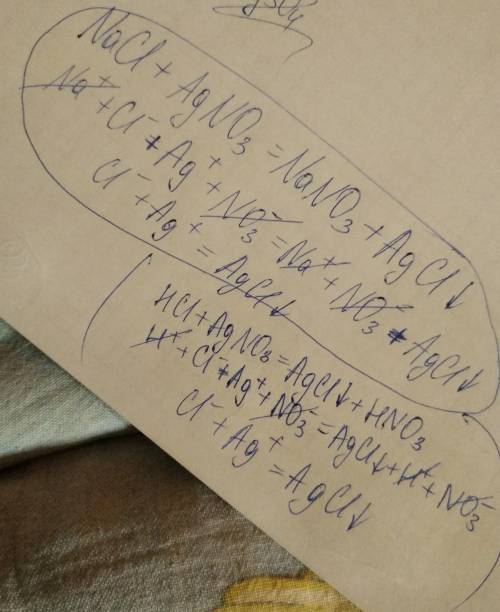 NaCl + AgNO₃ = NaNO₃ + AgCl↓
Na⁺ + Cl⁻ + Ag⁺ + NO₃⁻ = Na⁺ + NO₃⁻ + AgCl↓
Cl⁻ + Ag⁺ = AgCl↓
HCl + AgNO₃ = AgCl↓ + HNO₃
H⁺ + Cl⁻ + Ag⁺ + NO₃⁻ = AgCl↓ + H⁺ + NO₃⁻
Cl⁻ + Ag⁺ = AgCl↓